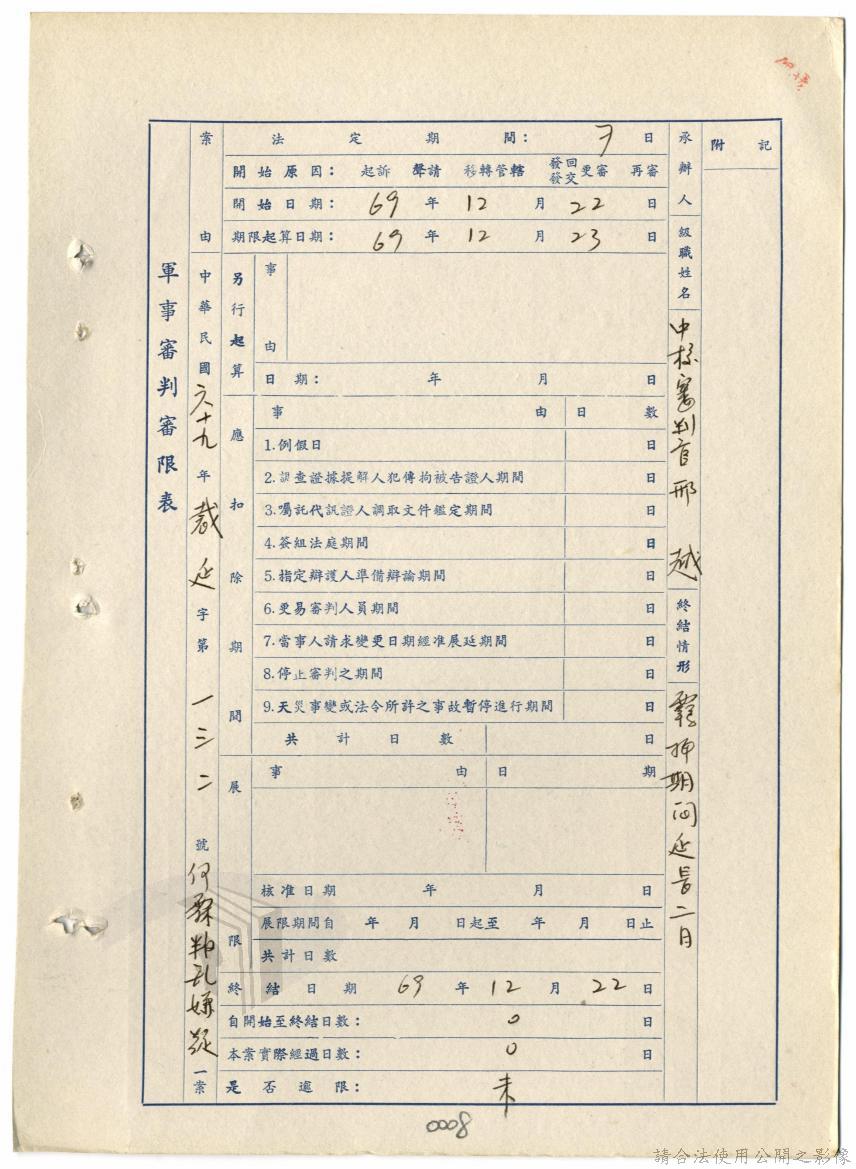 軍事審判審限表
案由 中華民國六十九年裁延字第一三二號何霖叛亂嫌疑一案
法定期間: 7 日
開始原因: 起訴 聲請 移轉管轄 發回發交更審 再審
開始日期: 69 年 12 月 22 日
期限起算日期: 69 年 12 月 23 日
另行起算
事由
日期: 年 月 日
應扣除期間
事由 日數
1.例假日 日
2.調查證據提解人犯傳拘被告證人期間 日
3.囑託代訊證人調取文件鑑定期間 日
4.簽組法庭期間 日
5.指定辯護人準備辯論期間 日
6.更易審判人員期間 日
7.當事人請求變更日期經准展延期間 日
8.停止審判之期間 日
9.天災事變或法令所許之事故暫停進行期間 日
共計日數 日
展限
事由 日期
核准日期 年 月 日
展限期間自 年 月 日起至 年 月 日止
共計日數
終結日期 69 年 12 月 22 日
自開始至終結日數: 0 日
本案實際經過日數: 0 日
是否逾限: 未
承辦人級職姓名 中校審判官邢越
終結情形 羈押期間延長二月
附記
0008
請合法使用公開之影像